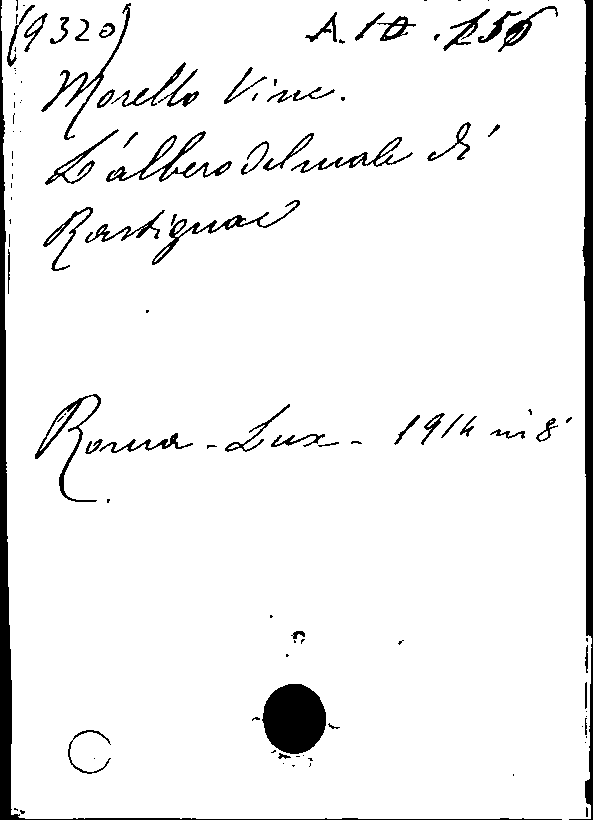 (9320) A. 10. 156
Morello Vinc.
L'albero del male di
Rastignac
Roma - Lux - 1914 in 8°